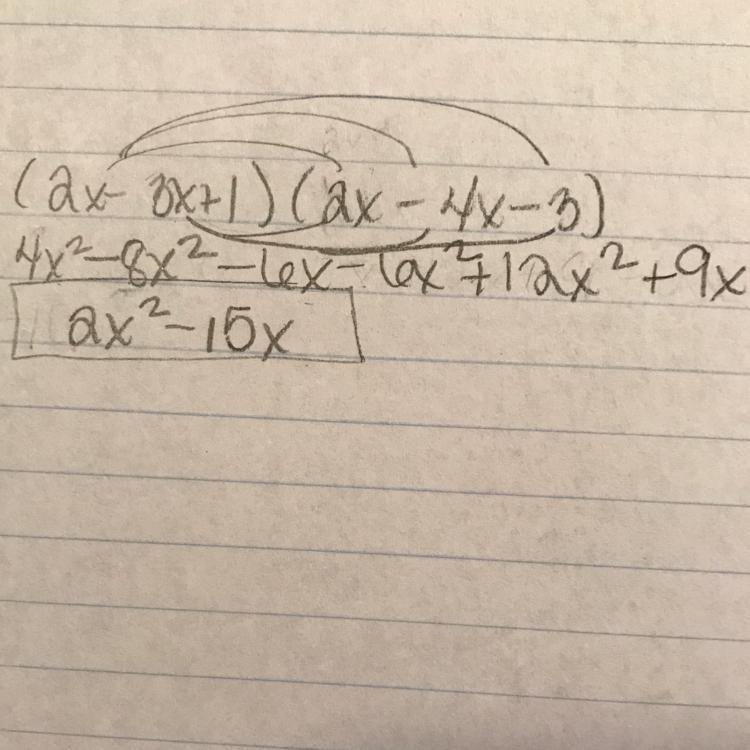 (2x - 3x+1)(2x - 4x-3)
4x²-8x²-6x-6x²+12x²+9x
2x²-15x